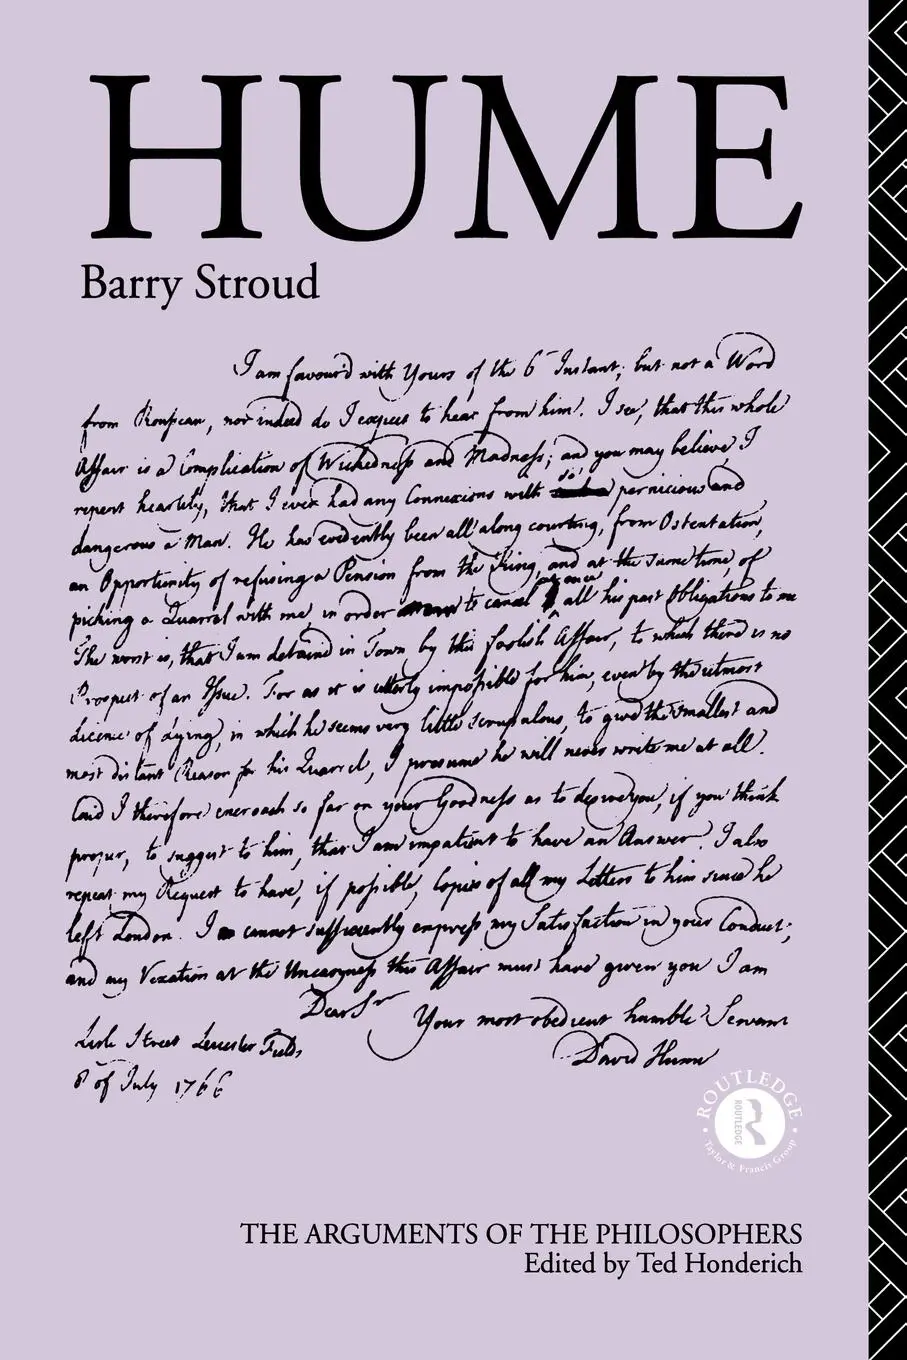 HUME
Barry Stroud
I am favour'd with Yours of the 6 Instant; but not a Word
from Rousseau, nor indeed do I expect to hear from him. I see, that this whole
Affair is a Complication of Wickedness and Madness; and you may believe, I
repent heartily, that I ever had any Connexions with so pernicious and
dangerous a Man. He has evidently been all along courting, from Ostentation,
an Opportunity of refusing a Pension from the King, and at the same time, of
picking a Quarrel with me, in order to cancel at once all his past Obligations to me
The worst is, that I am detained in Town by this foolish Affair, to which there is no
Prospect of an Issue. For as it is utterly impossible for him, even by the utmost
Licence of Lying, in which he seems very little scrupulous, to give the smallest and
most distant Reason for his Quarrel, I presume he will never write me at all.
Coud I therefore encroach so far on your Goodness as to desire you, if you think
proper, to suggest to him, that I am impatient to have an Answer. I also
repeat my Request to have, if possible, Copies of all my Letters to him since he
left London. I cannot sufficiently express my Satisfaction in your Conduct;
and my Vexation at the Uneasyness this Affair must have given you I am
Dear Sr
Your most obedient humble Servant
David Hume
Lisle Street Leicester Fields
8 of July 1766
ROUTLEDGE
ROUTLEDGE
Taylor & Francis Group
THE ARGUMENTS OF THE PHILOSOPHERS
Edited by Ted Honderich